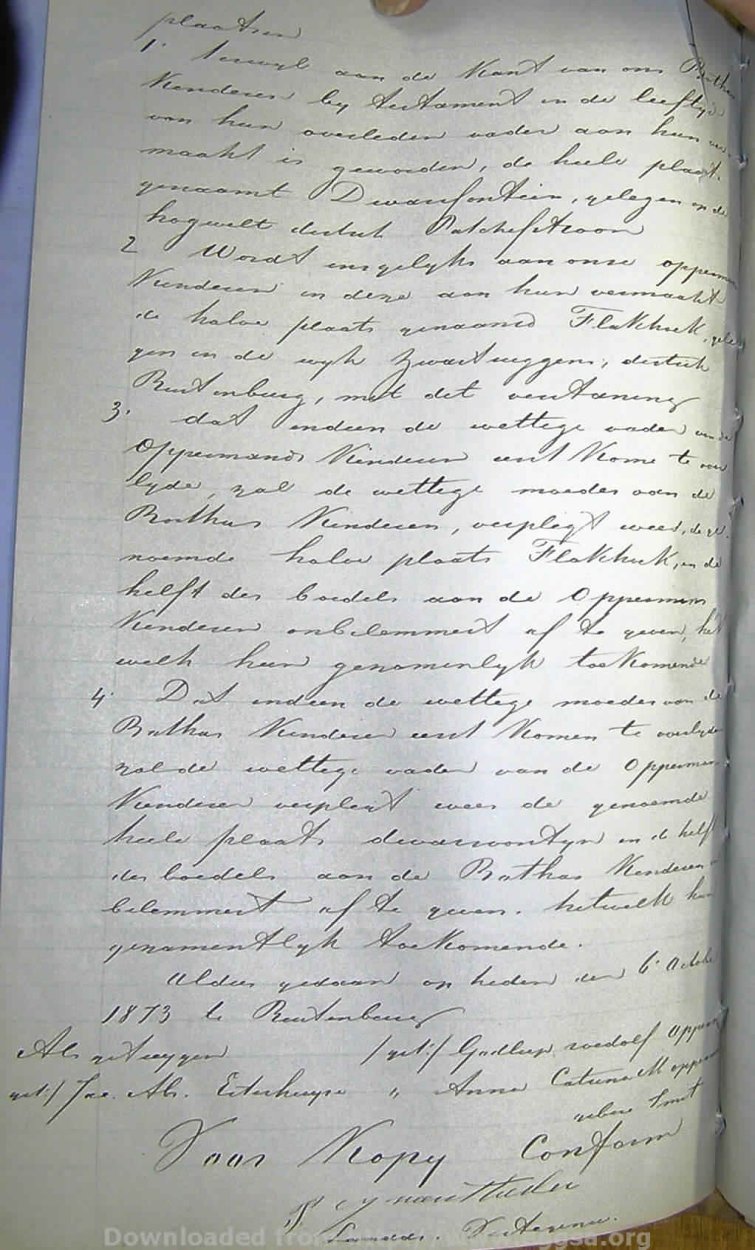 plaatsen
1. Terwyl aan de Kant van ons Botha
Kinderen by testament in de leeftyd
van hun overleden vader aan hun ver
maakt is geworden, de heele plaats
genaamt Dwarsfontein, gelegen op de
hogevelt destrik Potchefstroom
2 Wordt insgelyks aan onse opperman
Kinderen in deze aan hun vermaakt
de halve plaats genaamd Flakhoek, gele
gen in de wyk Zwartruggens, destrik
Rustenburg, met dit verstaning
3. dat indien de wettege vader van de
Oppermans Kinderen eerst Kome te over
lyde, zal de wettege moeder van de
Bothas Kinderen, verplegt wees, de ge
noemde halve plaats Flakhoek, en de
helft des boedels aan de Oppermans
Kinderen onbelemmert af te geven, het
welk hun genamenlyk toeKomende
4. Dat indien de wettege moeder van de
Bothas Kinderen eerst Komen te overlyde
zal de wettege vader van de Opperman
Kinderen verplegt wees de genoemde
heele plaats dwarsvontyn en de helft
des boedels aan de Bothas Kinderen
belemmert af te geven. hetwelk hun
gezamentlyk toeKomende.
Aldus gedaan op heden den 6e October
1873 te Rustenburg
Als getuygen /get:/ Godliep roedolf Opperman
get:/ Jac. Als. Esterhuyse " Anna Catrina M opperman
gebore Smit
Voor Kopy Conform
Landds.
Downloaded from ggsa.org